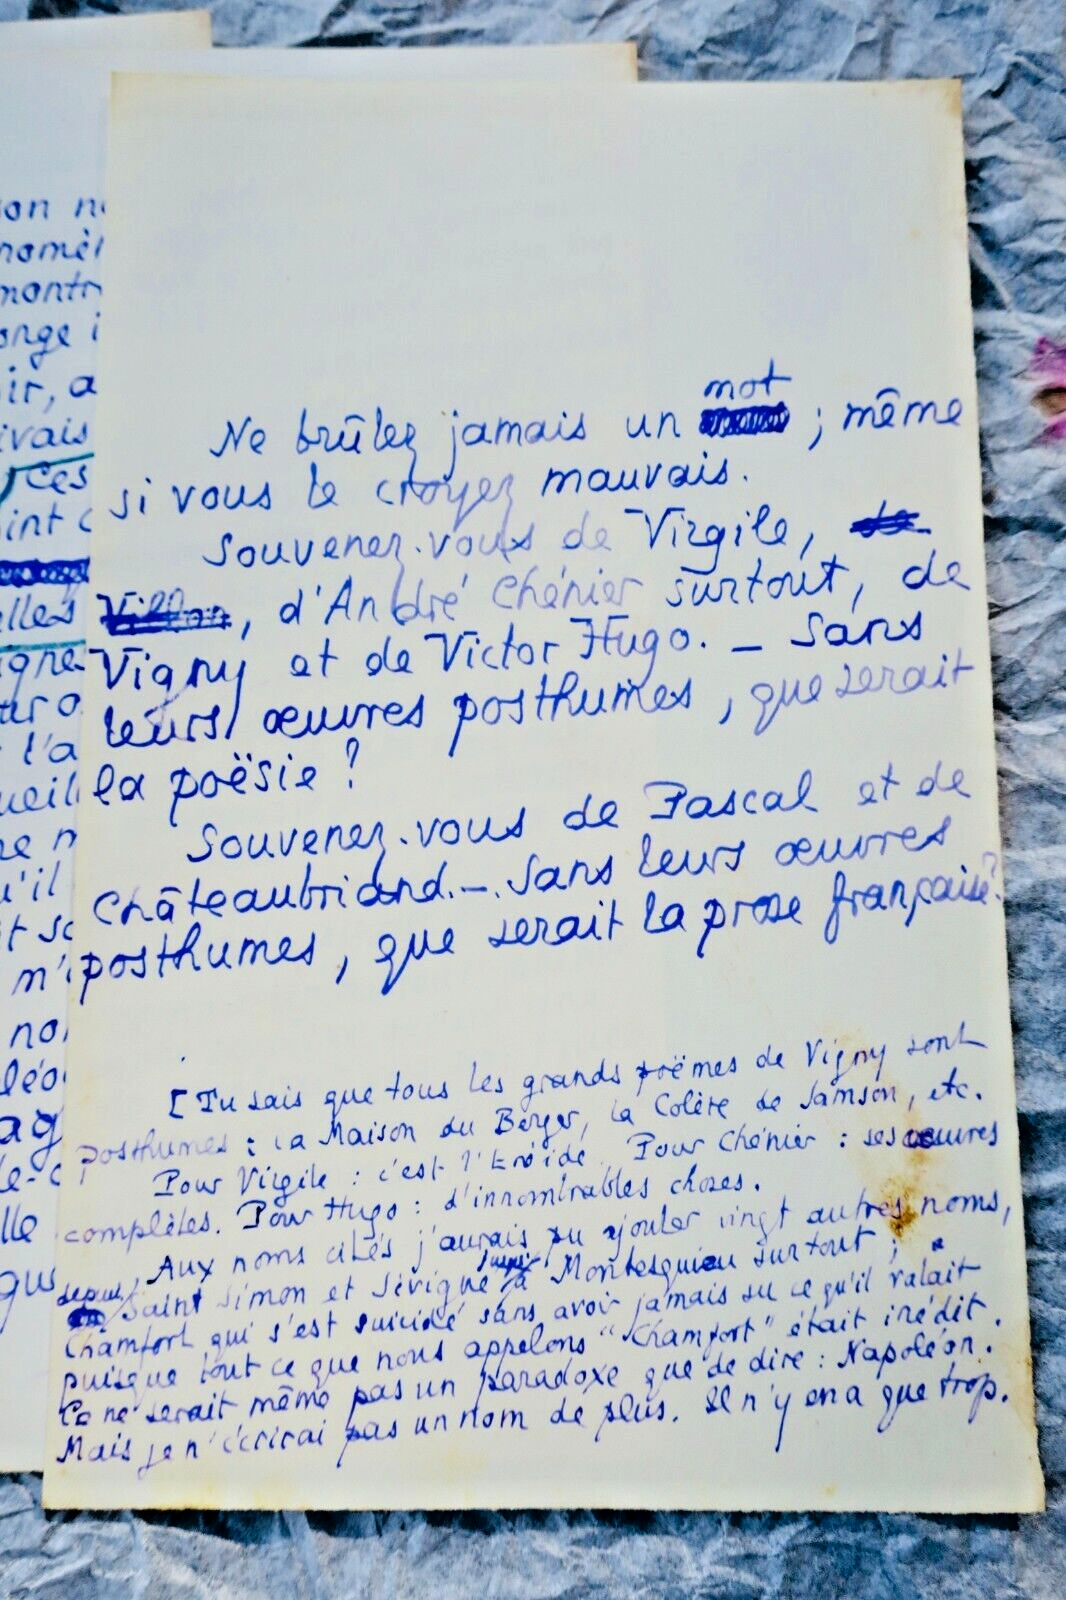 on n
nomèn
montr
onge i
ir, a
ivais
Ces
int c
elles
igne
uro
l'a
ueil
ne m
u'il
t sc
m'i
no
léo
ag
le-c
lle
gus
mot
Ne brûlez jamais un ; même
si vous le croyez mauvais.
Souvenez-vous de Virgile, de
Villon, d'André Chénier surtout, de
Vigny et de Victor Hugo. _ Sans
leurs œuvres posthumes, que serait
la poësie ?
Souvenez-vous de Pascal et de
Châteaubriand. _ Sans leurs œuvres
posthumes, que serait la prose française ?
[Tu sais que tous les grands poëmes de Vigny sont
posthumes : la Maison du Berger, la Colère de Samson, etc.
Pour Virgile : c'est l'Enéide. Pour Chénier : ses œuvres
complètes. Pour Hugo : d'innombrables choses.
Aux noms cités j'aurais pu ajouter vingt autres noms,
depuis Saint Simon et Sévigné jusqu'à Montesquieu surtout ;
Chamfort qui s'est suicidé sans avoir jamais su ce qu'il valait
puisque tout ce que nous appelons "Chamfort" était inédit.
Ce ne serait même pas un paradoxe que de dire : Napoléon.
Mais je n'écrirai pas un nom de plus. Il n'y en a que trop.